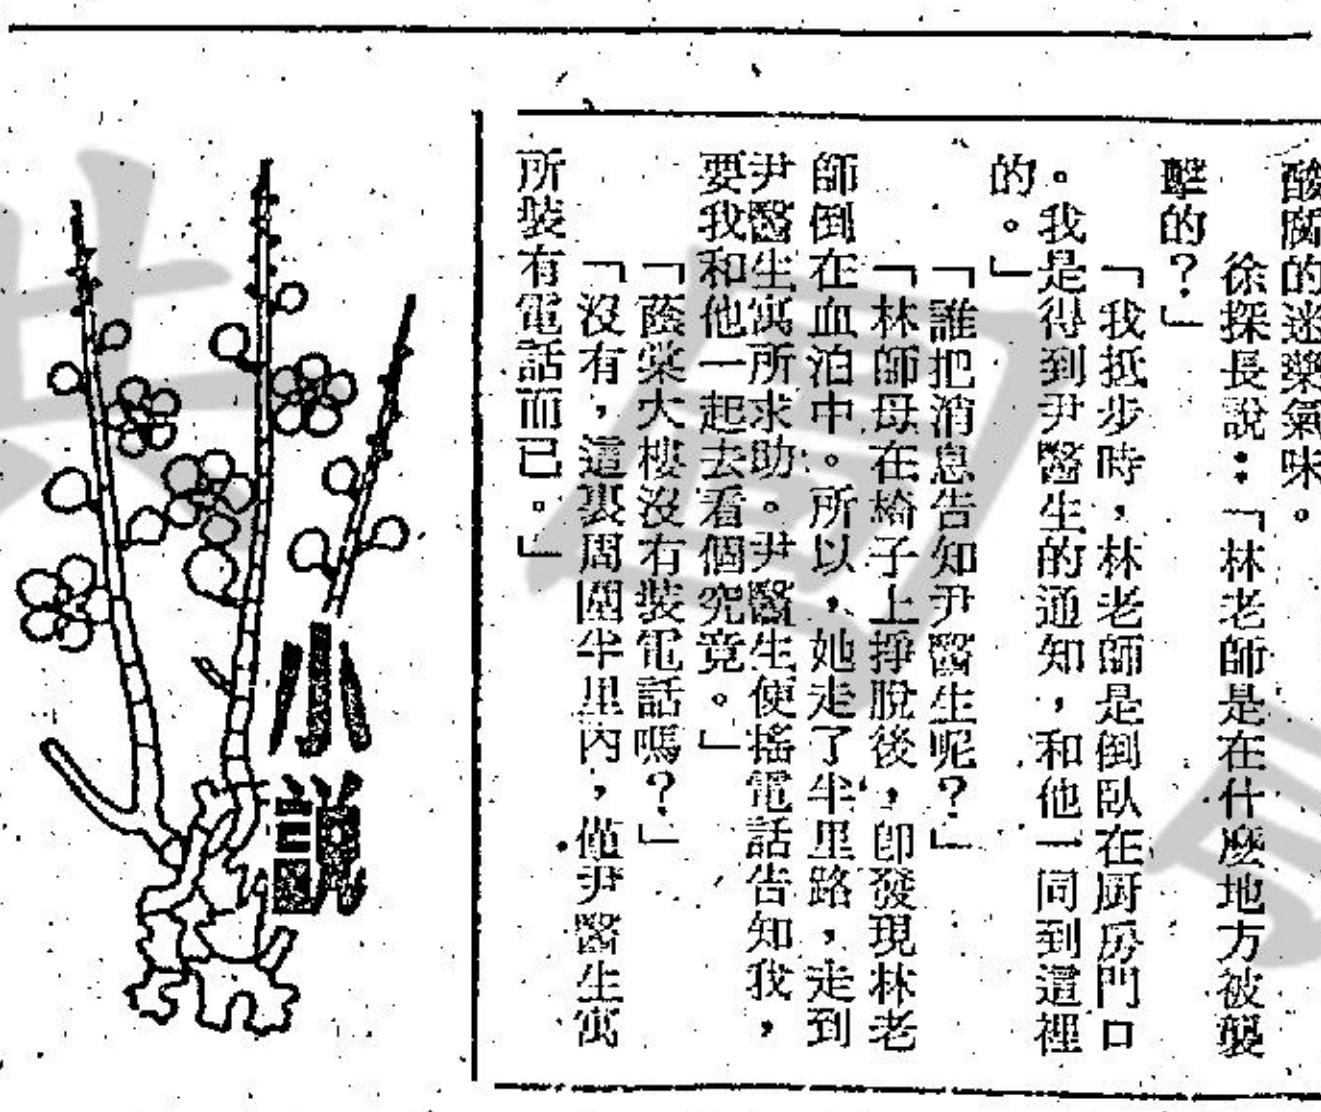 酸腐的迷藥氣味。
徐探長說：「林老師是在什麼地方被襲
擊的？」
「我抵步時，林老師是倒臥在厨房門口
。我是得到尹醫生的通知，和他一同到這裡
的。」
「誰把消息告知尹醫生呢？」
「林師母在椅子上掙脫後，卽發現林老
師倒在血泊中。所以，她走了半里路，走到
尹醫生寓所求助。尹醫生便搖電話告知我，
要我和他一起去看個究竟。」
「蔭棠大樓沒有裝電話嗎？」
「沒有，這裏周圍半里內，僅尹醫生寓
所裝有電話而已。」
小說